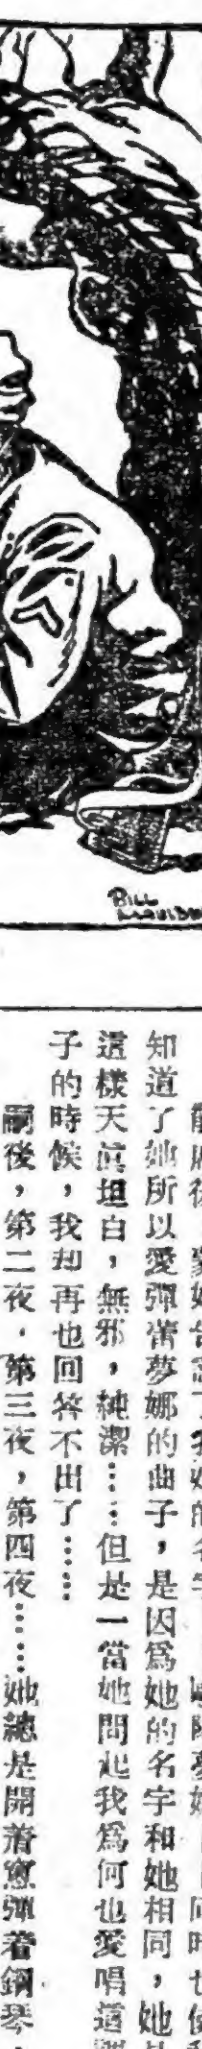 BILL
知道了她所以愛彈蕾夢娜的曲子,是因爲她的名字和她相同,她
這樣天眞坦白,無邪,純潔……但是一當她問起我爲何也愛唱這
子的時候,我却再也回答不出了……
嗣後,第二夜,第三夜,第四夜……她總是開着窗彈着鋼琴,